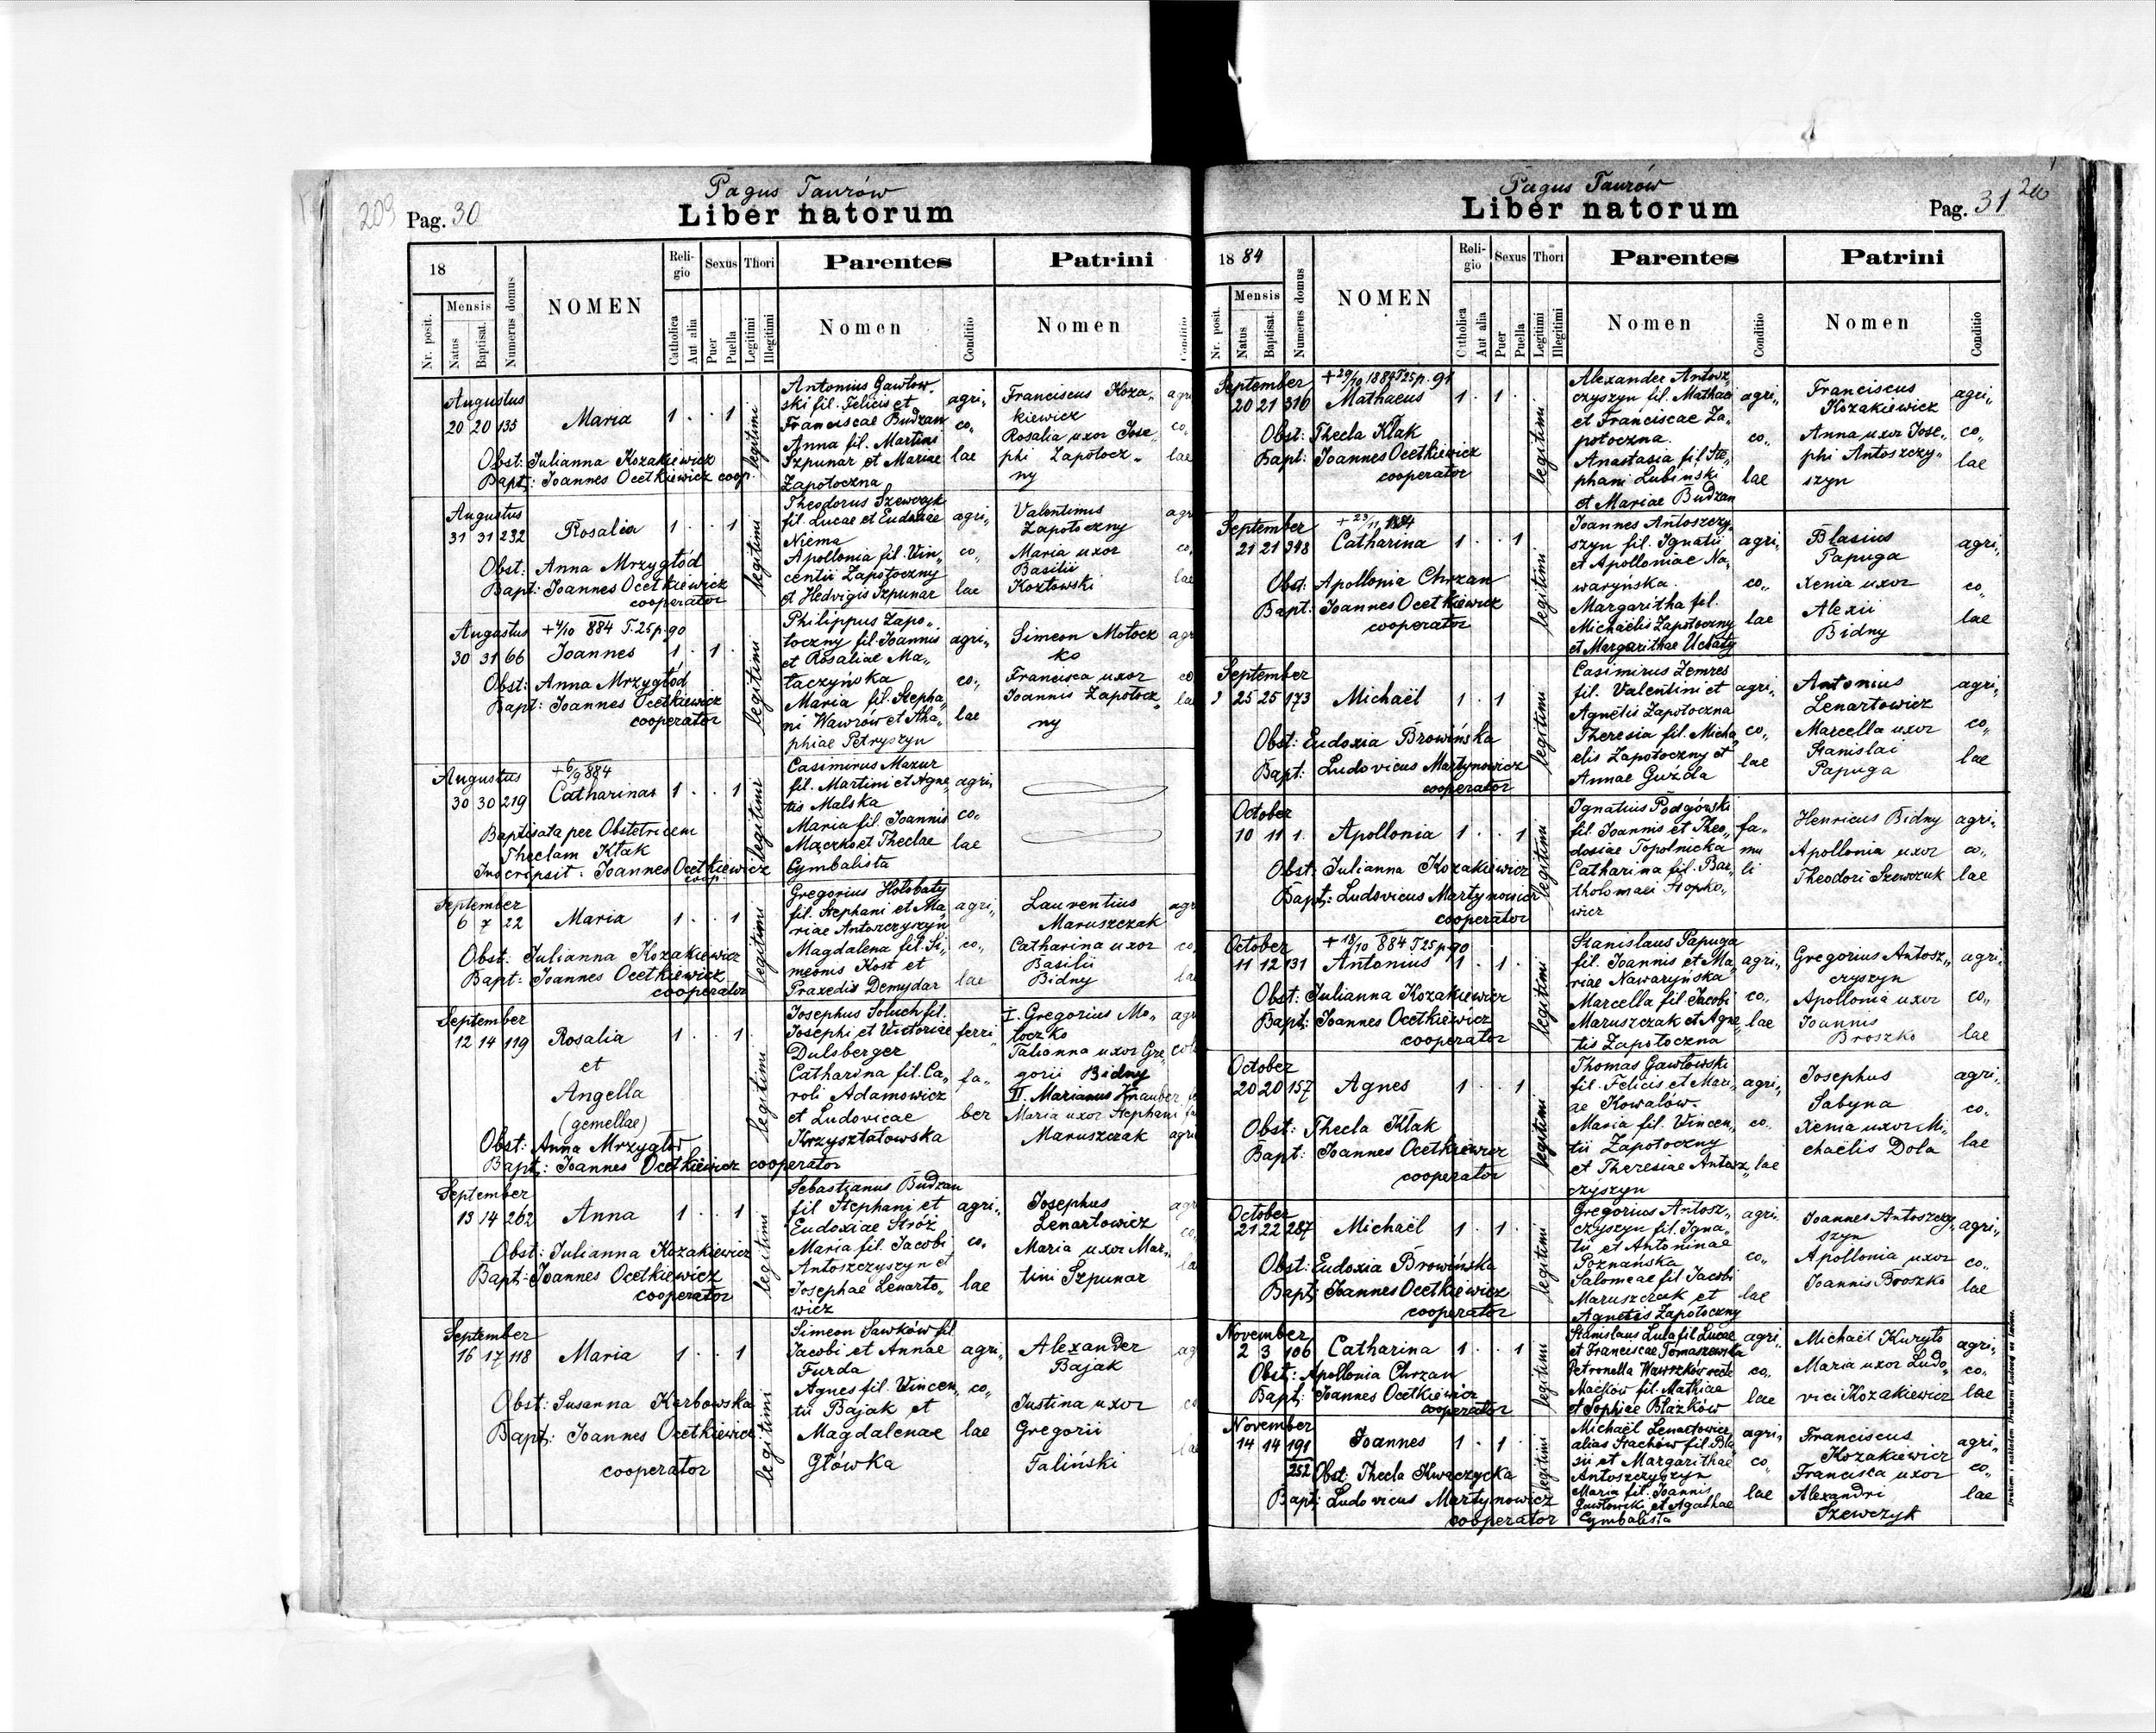 209
Pag. 30
Pagus Taurów
Liber natorum
18
Nr. posit.
Mensis
Natus
Baptisat.
Numerus domus
NOMEN
Religio
Catholica
Aut alia
Sexus
Puer
Puella
Thori
Legitimi
Illegitimi
Parentes
Nomen
Conditio
Patrini
Nomen
Conditio
Augustus
20 20 135 Maria 1 . . 1 legitimi
Obst: Julianna Kozakiewicz
Bapt: Joannes Ocetkiewicz coop.
Antonius Gawłow„
ski fil. Felicis et
Franciscae Budzan
Anna fil. Martini
Szpunar et Mariae
Zapotoczna
agri„
co„
lae
Franciscus Koza„
kiewicz
Rosalia uxor Jose„
phi Zapotocz„
ny
agri
co„
lae
Augustus
31 31 232 Rosalia 1 . . 1 legitimi
Obst: Anna Mrzygłód
Bapt: Joannes Ocetkiewicz
cooperator
Theodorus Szewczyk
fil. Lucae et Eudoxiae
Niema
Apollonia fil. Vin„
centii Zapotoczny
et Hedvigis Szpunar
agri„
co„
lae
Valentinus
Zapotoczny
Maria uxor
Basilii
Kozłowski
agr
co„
lae
Augustus +4/10 884 T.25 p.90
30 31 66 Joannes 1 . 1 . legitimi
Obst: Anna Mrzygłód
Bapt: Joannes Ocetkiewicz
cooperator
Philippus Zapo„
toczny fil. Joannis
et Rosaliae Ma„
taczyńska
Maria fil. Stepha„
ni Wawrów et Aha„
phiae Petryszyn
agri„
co„
lae
Simeon Motocz
ko
Francisca uxor
Joannis Zapotocz„
ny
agr
co
la
Augustus +6/9 884
30 30 219 Catharina 1 . . 1 legitimi
Baptisata per Obstetricem
Theclam Kłak
Inscripsit: Joannes Ocetkiewicz
coop.
Casimirus Mazur
fil. Martini et Agne„
tis Malska
Maria fil. Joannis
Mączko et Theclae
Cymbalista
agri„
co„
lae
September
6 7 22 Maria 1 . . 1 legitimi
Obst: Julianna Kozakiewicz
Bapt: Joannes Ocetkiewicz
cooperator
Gregorius Hołobaty
fil. Stephani et Ma„
riae Antoszczyszyn
Magdalena fil. Si„
meonis Kost et
Praxedis Demydar
agri„
co„
lae
Laurentius
Maruszczak
Catharina uxor
Basilii
Bidny
agr
co
la
September
12 14 119 Rosalia 1 . . 1 legitimi
et
Angella
(gemellae)
Obst: Anna Mrzygłód
Bapt: Joannes Ocetkiewicz cooperator
Josephus Soluch fil.
Josephi et Victoriae
Dulsberger
Catharina fil. Ca„
roli Adamowicz
et Ludovicae
Krzyształowska
ferri„
fa„
ber
I. Gregorius Mo„
toczko
Tatianna uxor Gre„
gorii Bidny
II. Marianus Knauber
Maria uxor Stephani
Maruszczak
agr
agri
September
13 14 262 Anna 1 . . 1 legitimi
Obst: Julianna Kozakiewicz
Bapt: Joannes Ocetkiewicz
cooperator
Sebastianus Budzan
fil Stephani et
Eudoxiae Stróż
Maria fil. Jacobi
Antoszczyszyn et
Josephae Lenarto„
wicz
agri„
co„
lae
Josephus
Lenartowicz
Maria uxor Mar„
tini Szpunar
agr
co
la
September
16 17 118 Maria 1 . . 1 legitimi
Obst: Susanna Karbowska
Bapt: Joannes Ocetkiewicz
cooperator
Simeon Sawków fil
Jacobi et Annae
Furda
Agnes fil. Vincen„
tii Bajak et
Magdalenae
Główka
agri„
co„
lae
Alexander
Bajak
Justina uxor
Gregorii
Taliński
ag
co
la
Pagus Taurów
Liber natorum
Pag. 31
1884
Nr. posit.
Mensis
Natus
Baptisat.
Numerus domus
NOMEN
Religio
Catholica
Aut alia
Sexus
Puer
Puella
Thori
Legitimi
Illegitimi
Parentes
Nomen
Conditio
Patrini
Nomen
Conditio
September +29/10 1884 T25 p. 91
20 21 310 Mathaeus 1 . 1 . legitimi
Obst: Thecla Kłak
Bapt: Joannes Ocetkiewicz
cooperator
Alexander Antosz„
czyszyn fil. Mathaei
et Franciscae Za„
potoczna.
Anastasia fil. Ste„
phani Lubiński
et Mariae Budzan
agri„
co„
lae
Franciscus
Kozakiewicz
Anna uxor Jose„
phi Antoszczy„
szyn
agri„
co„
lae
September +23/11 1884
21 21 348 Catharina 1 . . 1 legitimi
Obst: Apollonia Chrzan
Bapt: Joannes Ocetkiewicz
cooperator
Joannes Antoszczy„
szyn fil. Ignatii
et Apolloniae Na„
waryńska.
Margaritha fil.
Michaelis Zapotoczny
et Margarithae Uchaty
agri„
co„
lae
Blasius
Papuga
Xenia uxor
Alexii
Bidny
agri„
co„
lae
September
25 25 173 Michaël 1 . 1 legitimi
Obst: Eudoxia Browińska
Bapt: Ludovicus Martynowicz
cooperator
Casimirus Zemres
fil. Valentini et
Agnetis Zapotoczna
Theresia fil. Micha„
elis Zapotoczny et
Annae Guzda
agri„
co„
lae
Antonius
Lenartowicz
Marcella uxor
Stanislai
Papuga
agri„
co„
lae
October
10 11 1. Apollonia 1 . . 1 legitimi
Obst: Julianna Kozakiewicz
Bapt: Ludovicus Martynowicz
cooperator
Ignatius Podgórski
fil. Joannis et Theo„
dosiae Topolnicka
Catharina fil. Bar„
tholomaei Stopko„
wicz
fa„
mu
li
Henricus Bidny
Apollonia uxor
Theodori Szewczuk
agri„
co„
lae
October +18/10 884 T25 p. 90
11 12 131 Antonius 1 . 1 . legitimi
Obst: Julianna Kozakiewicz
Bapt: Joannes Ocetkiewicz
cooperator
Stanislaus Papuga
fil. Joannis et Ma„
riae Nawaryńska
Marcella fil Jacobi
Maruszczak et Agne„
tis Zapotoczna
agri„
co„
lae
Gregorius Antosz„
czyszyn
Apollonia uxor
Joannis
Broszko
agri„
co„
lae
October
20 20 157 Agnes 1 . . 1 legitimi
Obst: Thecla Kłak
Bapt: Joannes Ocetkiewicz
cooperator
Thomas Gawłowski
fil. Felicis et Mari„
ae Kowalów.
Maria fil. Vincen„
tii Zapotoczny
et Theresiae Antosz„
czyszyn
agri„
co.
lae
Josephus
Sabyna
Xenia uxor Mi„
chaëlis Dola
agri„
co.
lae
October
21 22 287 Michaël 1 . 1 . legitimi
Obst: Eudoxia Browińska
Bapt: Joannes Ocetkiewicz
cooperator
Gregorius Antosz„
czyszyn fil. Igna„
tii et Antoninae
Poznańska
Salomeae fil Jacobi
Maruszczak et
Agnetis Zapotoczny
agri„
co„
lae
Joannes Antoszczy„
szyn
Apollonia uxor
Joannis Broszko
agri„
co„
lae
November
2 3 106 Catharina 1 . . 1 legitimi
Obst: Apollonia Chrzan
Bapt: Joannes Ocetkiewicz
cooperator
Stanislaus Lula fil Lucae
et Franciscae Tomaszewska
Petronella Wawrzków recte
Maćków fil. Mathiae
et Sophiae Blażków
agri„
co„
lae
Michaël Kuryło
Maria uxor Ludo„
vici Kozakiewicz
agri„
co„
lae
November
14 14 191 Joannes 1 . 1 . legitimi
252 Obst: Thecla Kwaczycka
Bapt: Ludovicus Martynowicz
cooperator
Michaël Lenartowicz
alias Stachów fil. Bla„
sii et Margarithae
Antoszczyszyn
Maria fil. Joannis
Gawłowski et Agathae
Cymbalista
agri„
co„
lae
Franciscus
Kozakiewicz
Francisca uxor
Alexandri
Szewczyk
agri„
co„
lae